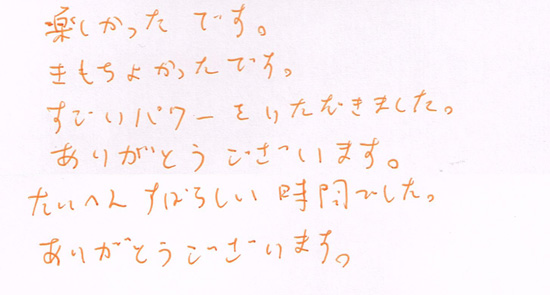 楽しかったです。
きもちよかったです。
すごいパワーをいただきました。
ありがとうございます。
たいへんすばらしい時間でした。
ありがとうございます。